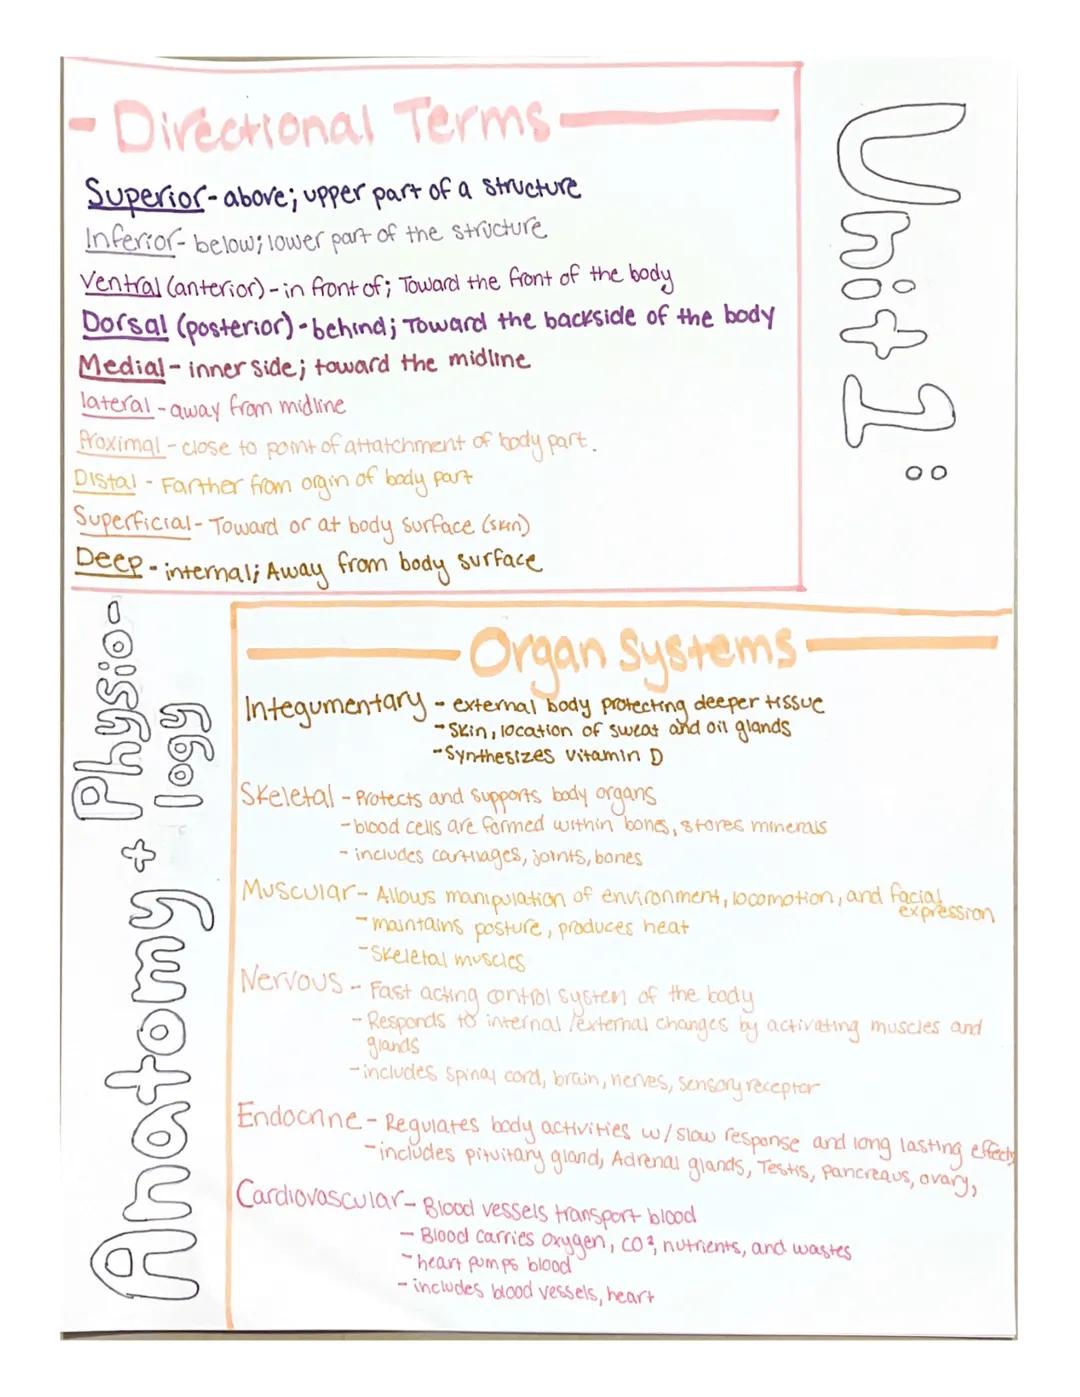 - Directional Terms
Superior - above; upper part of a structure
Inferior - below; lower part of the structure
Ventral (anterior) - in front of; Toward the front of the body
Dorsal (posterior) - behind; Toward the backside of the body
Medial - inner side; toward the midline
lateral - away from midline
Proximal - close to point of attatchment of body part.
Distal - Farther from orgin of body part
Superficial - Toward or at body surface (skin)
Deep - internal; Away from body surface
Unit 1:
Anatomy + Physio-
logy
Organ Systems
Integumentary - external body protecting deeper tissue
- Skin, location of sweat and oil glands
- Synthesizes vitamin D
Skeletal - Protects and supports body organs
- blood cells are formed within bones, stores minerals
- includes cartilages, joints, bones
Muscular - Allows manipulation of environment, locomotion, and facial
expression
- maintains posture, produces heat
- Skeletal muscles
Nervous - Fast acting control system of the body
- Responds to internal/external changes by activating muscles and
glands
- includes spinal cord, brain, nerves, sensory receptor
Endocrine - Regulates body activities w/ slow response and long lasting effects
- includes pituitary gland, Adrenal glands, Testis, pancreaus, ovary,
Cardiovascular - Blood vessels transport blood
- Blood carries oxygen, CO², nutrients, and wastes
- heart pumps blood
- includes blood vessels, heart